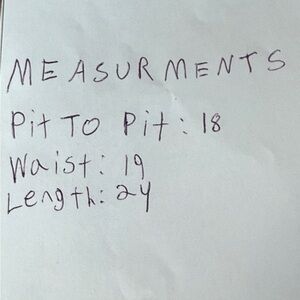 MEASURMENTS
Pit TO Pit: 18
Waist: 19
Length: 24